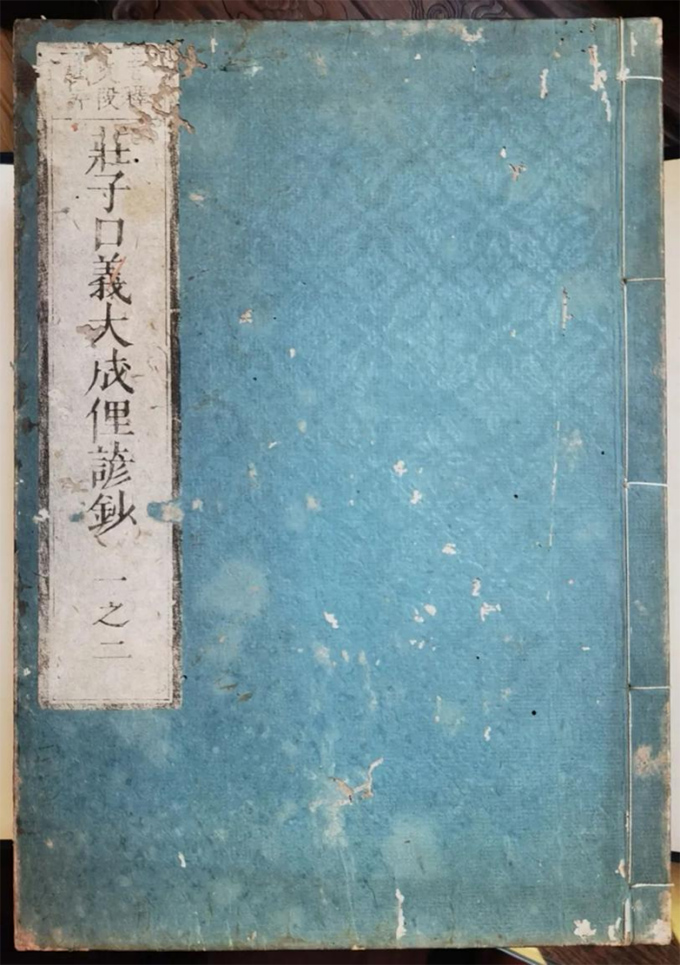 莊子口義大成俚諺鈔
一之二